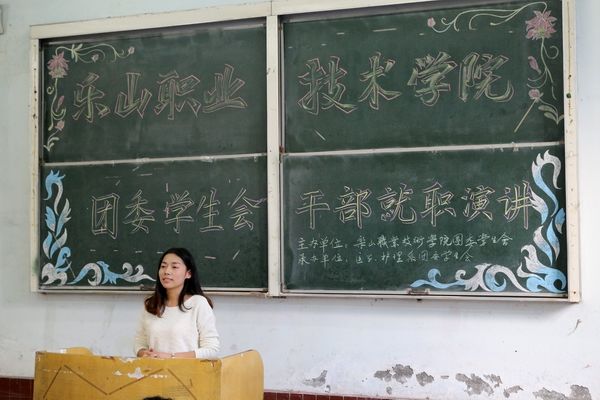 乐山职业技术学院
团委学生会干部就职演讲
主办单位：樂山職業技術學院团委学生会
承办单位：护理系团委学生会